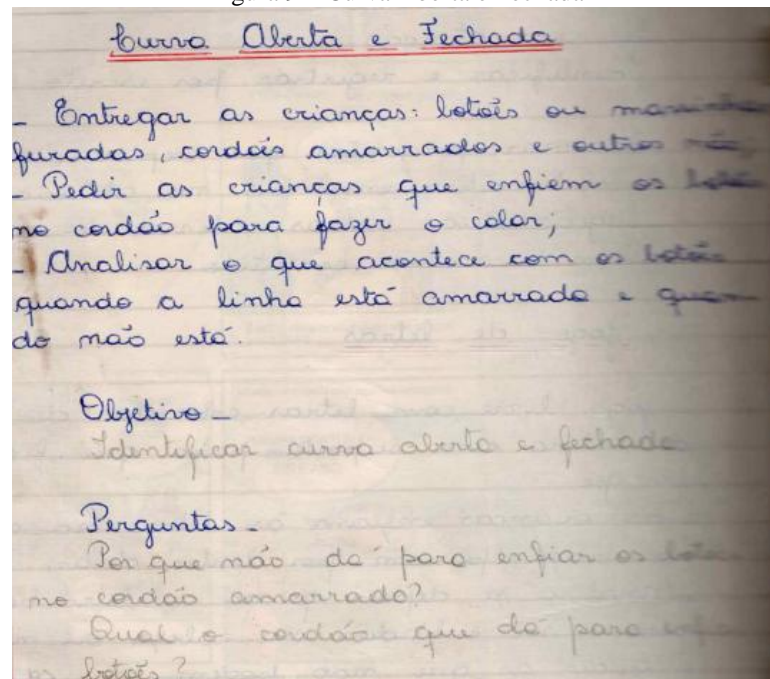 Curva Aberta e Fechada
- Entregar as crianças: botões ou
furadas, cordões amarrados e outros não;
- Pedir as crianças que enfiem os
no cordão para fazer o colar;
- Analisar o que acontece com os botões
quando a linha está amarrada e quan-
do não está.
Objetivo -
Identificar curva aberta e fechada
Perguntas -
Por que não dá para enfiar os
no cordão amarrado?
Qual o cordão que dá para
os botões?